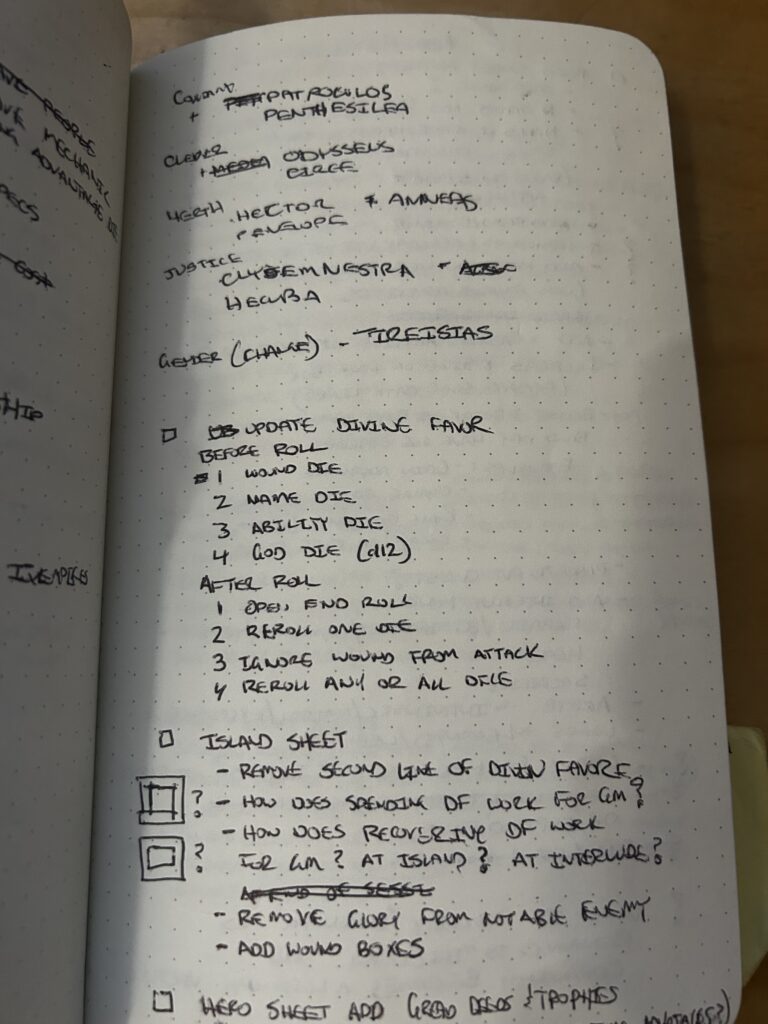 PEOPLE
MECHANIC
ADVANTAGE DIE
SPECS
COST
SHIP
+ PATROCULOS
PENTHESILEA
CLEVER
+ MEDEA ODYSSEUS
CIRCE
HECTOR
PENELOPE
JUSTICE
CLYDEMNESTRA
HECUBA
(CHANGE) - TIREISIAS
UPDATE DIVINE FAVOR
BEFORE ROLL
1 WOUND DIE
2 NAME DIE
3 ABILITY DIE
4 GOD DIE (d12)
AFTER ROLL
1 OPEN END ROLL
2 REROLL ONE DIE
3 IGNORE WOUND FROM ATTACK
4 REROLL ANY OR ALL DICE
ISLAND SHEET
- REMOVE SECOND LINE OF DIVIN FAVORE
? - HOW DOES SPENDING DF WORK FOR GM?
- HOW DOES RECOVERING DF WORK
? FOR GM? AT ISLAND? AT INTERLUDE?
END OF
- REMOVE GLORY FROM NOTABLE ENEMY
- ADD WOUND BOXES
HERO SHEET ADD GREAD DEEDS & TROPHIES